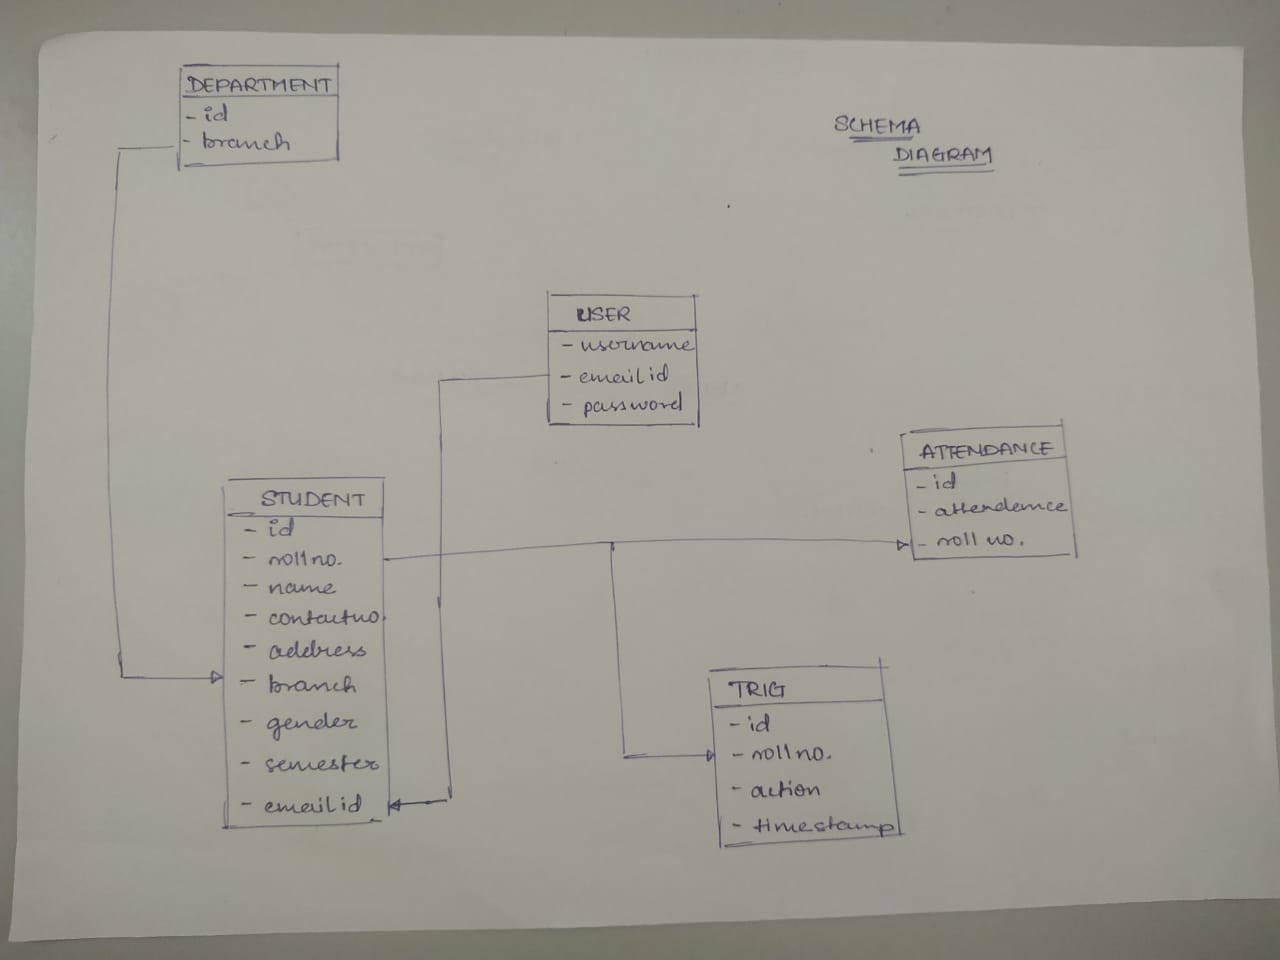 DEPARTMENT
- id
- branch
SCHEMA
DIAGRAM
USER
- username
- email id
- password
ATTENDANCE
- id
- attendence
- roll no.
STUDENT
- id
- roll no.
- name
- contactno.
- address
- branch
- gender
- semester
- email id
TRIG
- id
- roll no.
- action
- timestamp